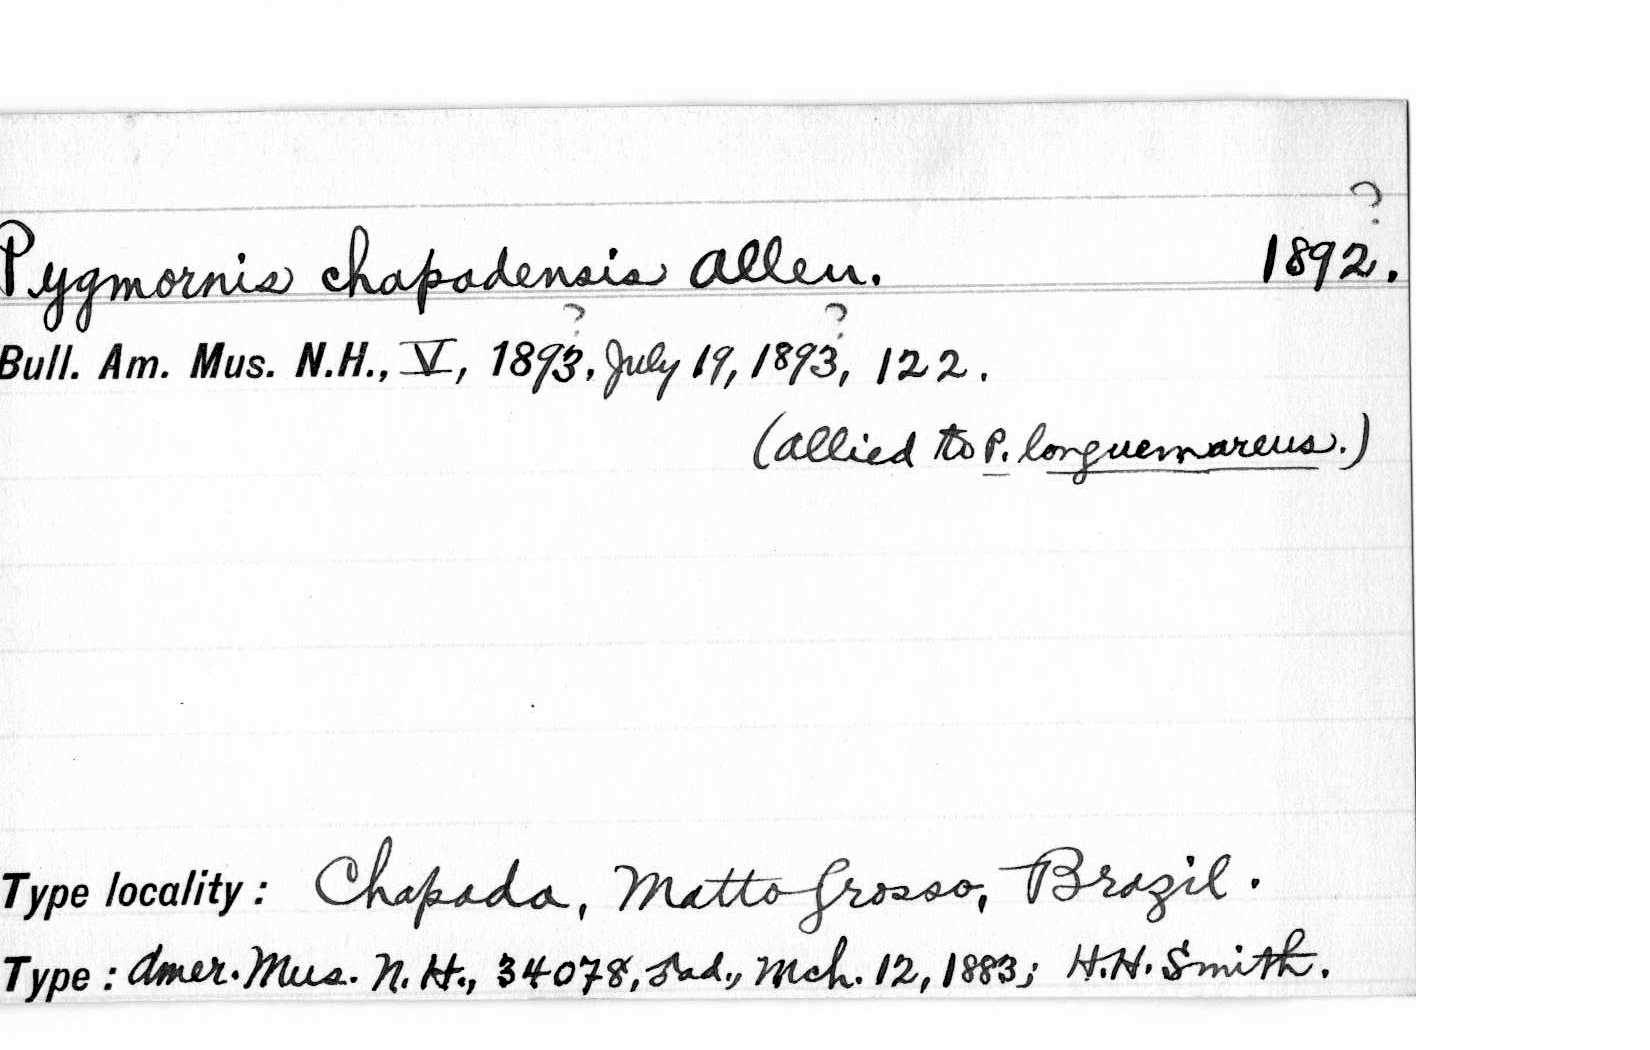 ?
Pygmornis chapadensis Allen. 1892.
? ?
Bull. Am. Mus. N.H., V, 1893, July 19, 1893, 122.
(allied to P. longuemareus.)
Type locality: Chapada, Matto Grosso, Brazil.
Type: Amer. Mus. N. H., 34078, ad., Mch. 12, 1883; H.H. Smith.